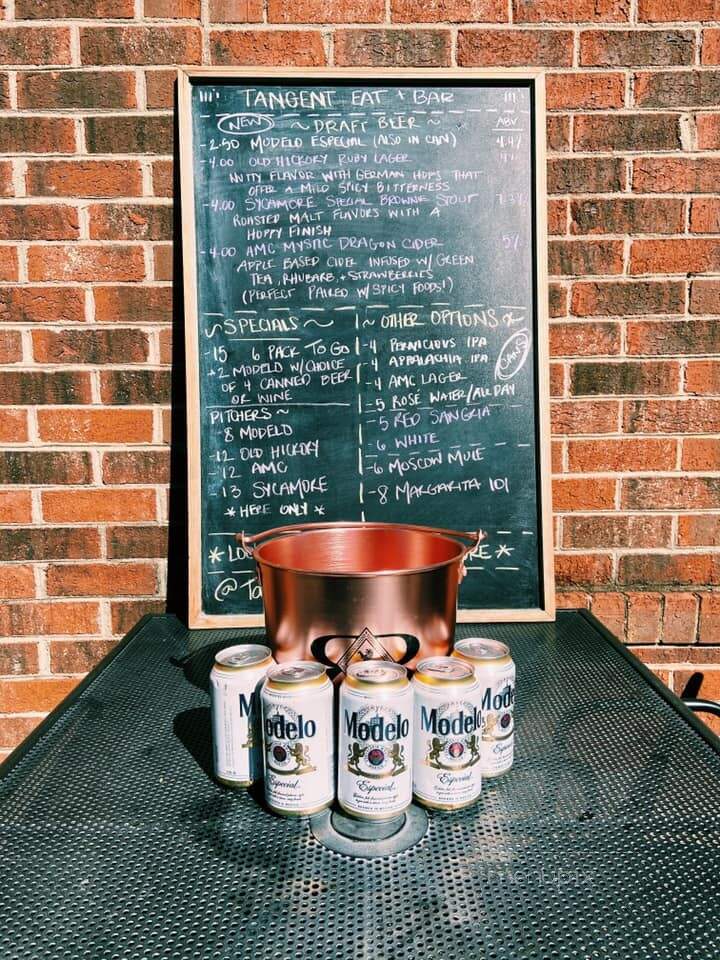 TANGENT EAT + BAR
NEW ~ DRAFT BEER ~ ABV
-2.50 MODELO ESPECIAL (ALSO IN CAN) 4.4%
-4.00 OLD HICKORY RUBY LAGER 4%
NUTTY FLAVOR WITH GERMAN HOPS THAT
OFFER A MILD SPICY BITTERNESS
-4.00 SYCAMORE SPECIAL BROWNIE STOUT 7.3%
ROASTED MALT FLAVORS WITH A
HOPPY FINISH
-4.00 AMC MYSTIC DRAGON CIDER 5%
APPLE BASED CIDER INFUSED W/ GREEN
TEA, RHUBARB, + STRAWBERRIES
(PERFECT PAIRED W/ SPICY FOODS!)
~ SPECIALS ~
-15 6 PACK TO GO
+2 MODELO W/ CHOICE
OF 4 CANNED BEER
OR WINE
PITCHERS ~
-8 MODELO
-12 OLD HICKORY
-12 AMC
-13 SYCAMORE
*HERE ONLY*
~ OTHER OPTIONS ~
-4 PERNICIOUS IPA
-4 APPALACHIA IPA
CANS
-4 AMC LAGER
-5 ROSÉ WATER/ALL DAY
-5 RED SANGRIA
-6 WHITE
-6 MOSCOW MULE
-8 MARGARITA 101
*LO RE*
@TA
Modelo
Especial
Modelo
Especial
Modelo
Especial
Modelo
Especial
M
menupix